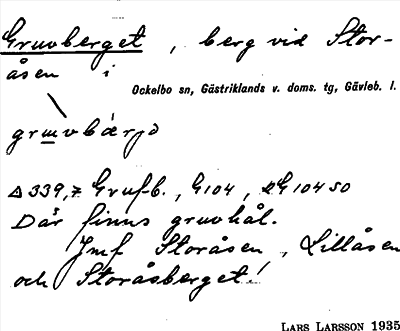 Gruvberget, berg vid Stor-
åsen i
Ockelbo sn, Gästriklands v. doms. tg, Gävleb. l.
grmvbärjə
△ 339,7 Grufb., G 104, RG 104 50
Där finns gruvhål.
Jmf Storåsen, Lillåsen
och Storåsberget!
LARS LARSSON 1935